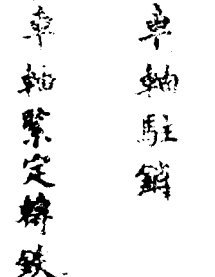 車軸駐
車軸緊定鉄